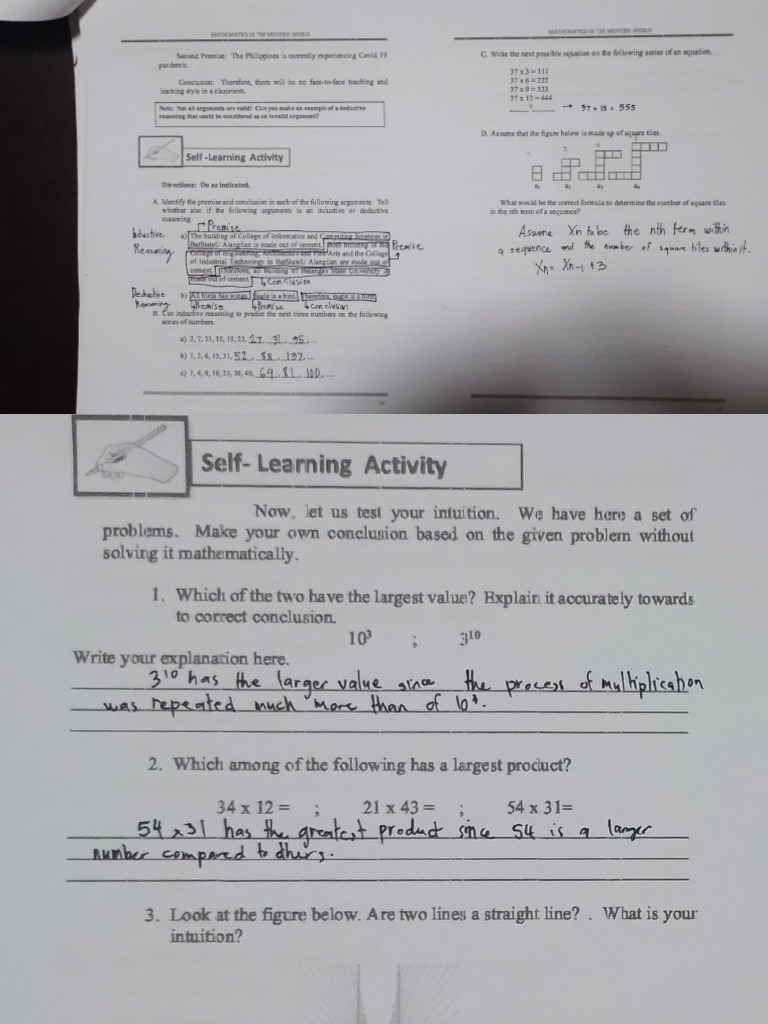 MATHEMATICS IN THE MODERN WORLD
Second Premise: The Philippines is currently experiencing Covid 19
pandemic.
Conclusion: Therefore, there will be no face-to-face teaching and
learning style in a classroom.
Note: Not all arguments are valid! Can you make an example of a deductive
reasoning that could be considered as an invalid argument?
Self -Learning Activity
Directions: Do as indicated.
A. Identify the premise and conclusion in each of the following arguments. Tell
whether also if the following arguments is an inductive or deductive
reasoning.
Premise
Inductive
Reasoning
a) The building of College of Informatics and Computing Sciences in
BatStateU Alangilan is made out of cement. Both building of the
Premise
College of Engineering, Architecture and Fine Arts and the College
of Industrial Technology in BatStateU Alangilan are made out of
cement. Therefore, all building of Batangas State University is
made out of cement.
Conclusion
Deductive
Reasoning
b) All birds has wings. Eagle is a bird. Therefore, eagle is a bird.
Premise Premise Conclusion
B. Use inductive reasoning to predict the next three numbers on the following
series of numbers.
a) 3, 7, 11, 15, 19, 23, 27, 31, 35, ...
b) 1, 2, 6, 15, 31, 52, 88, 137, ...
c) 1, 4, 9, 16, 25, 36, 49, 64, 81, 100, ...
MATHEMATICS IN THE MODERN WORLD
C. Write the next possible equation on the following series of an equation.
37 x 3 = 111
37 x 6 = 222
37 x 9 = 333
37 x 12 = 444
? → 37 x 15 = 555
D. Assume that the figure below is made up of square tiles.
a₁ a₂ a₃ a₄
What would be the correct formula to determine the number of square tiles
in the nth term of a sequence?
Assume Xn to be the nth term within
a sequence and the number of square tiles within it.
Xn = Xn-1 + 3
Self- Learning Activity
Now, let us test your intuition. We have here a set of
problems. Make your own conclusion based on the given problem without
solving it mathematically.
1. Which of the two have the largest value? Explain it accurately towards
to correct conclusion.
10³ ; 3¹⁰
Write your explanation here.
3¹⁰ has the larger value since the process of multiplication
was repeated much more than of 10³.
2. Which among of the following has a largest product?
34 x 12 = ; 21 x 43 = ; 54 x 31=
54 x 31 has the greatest product since 54 is a larger
number compared to others.
3. Look at the figure below. Are two lines a straight line? . What is your
intuition?